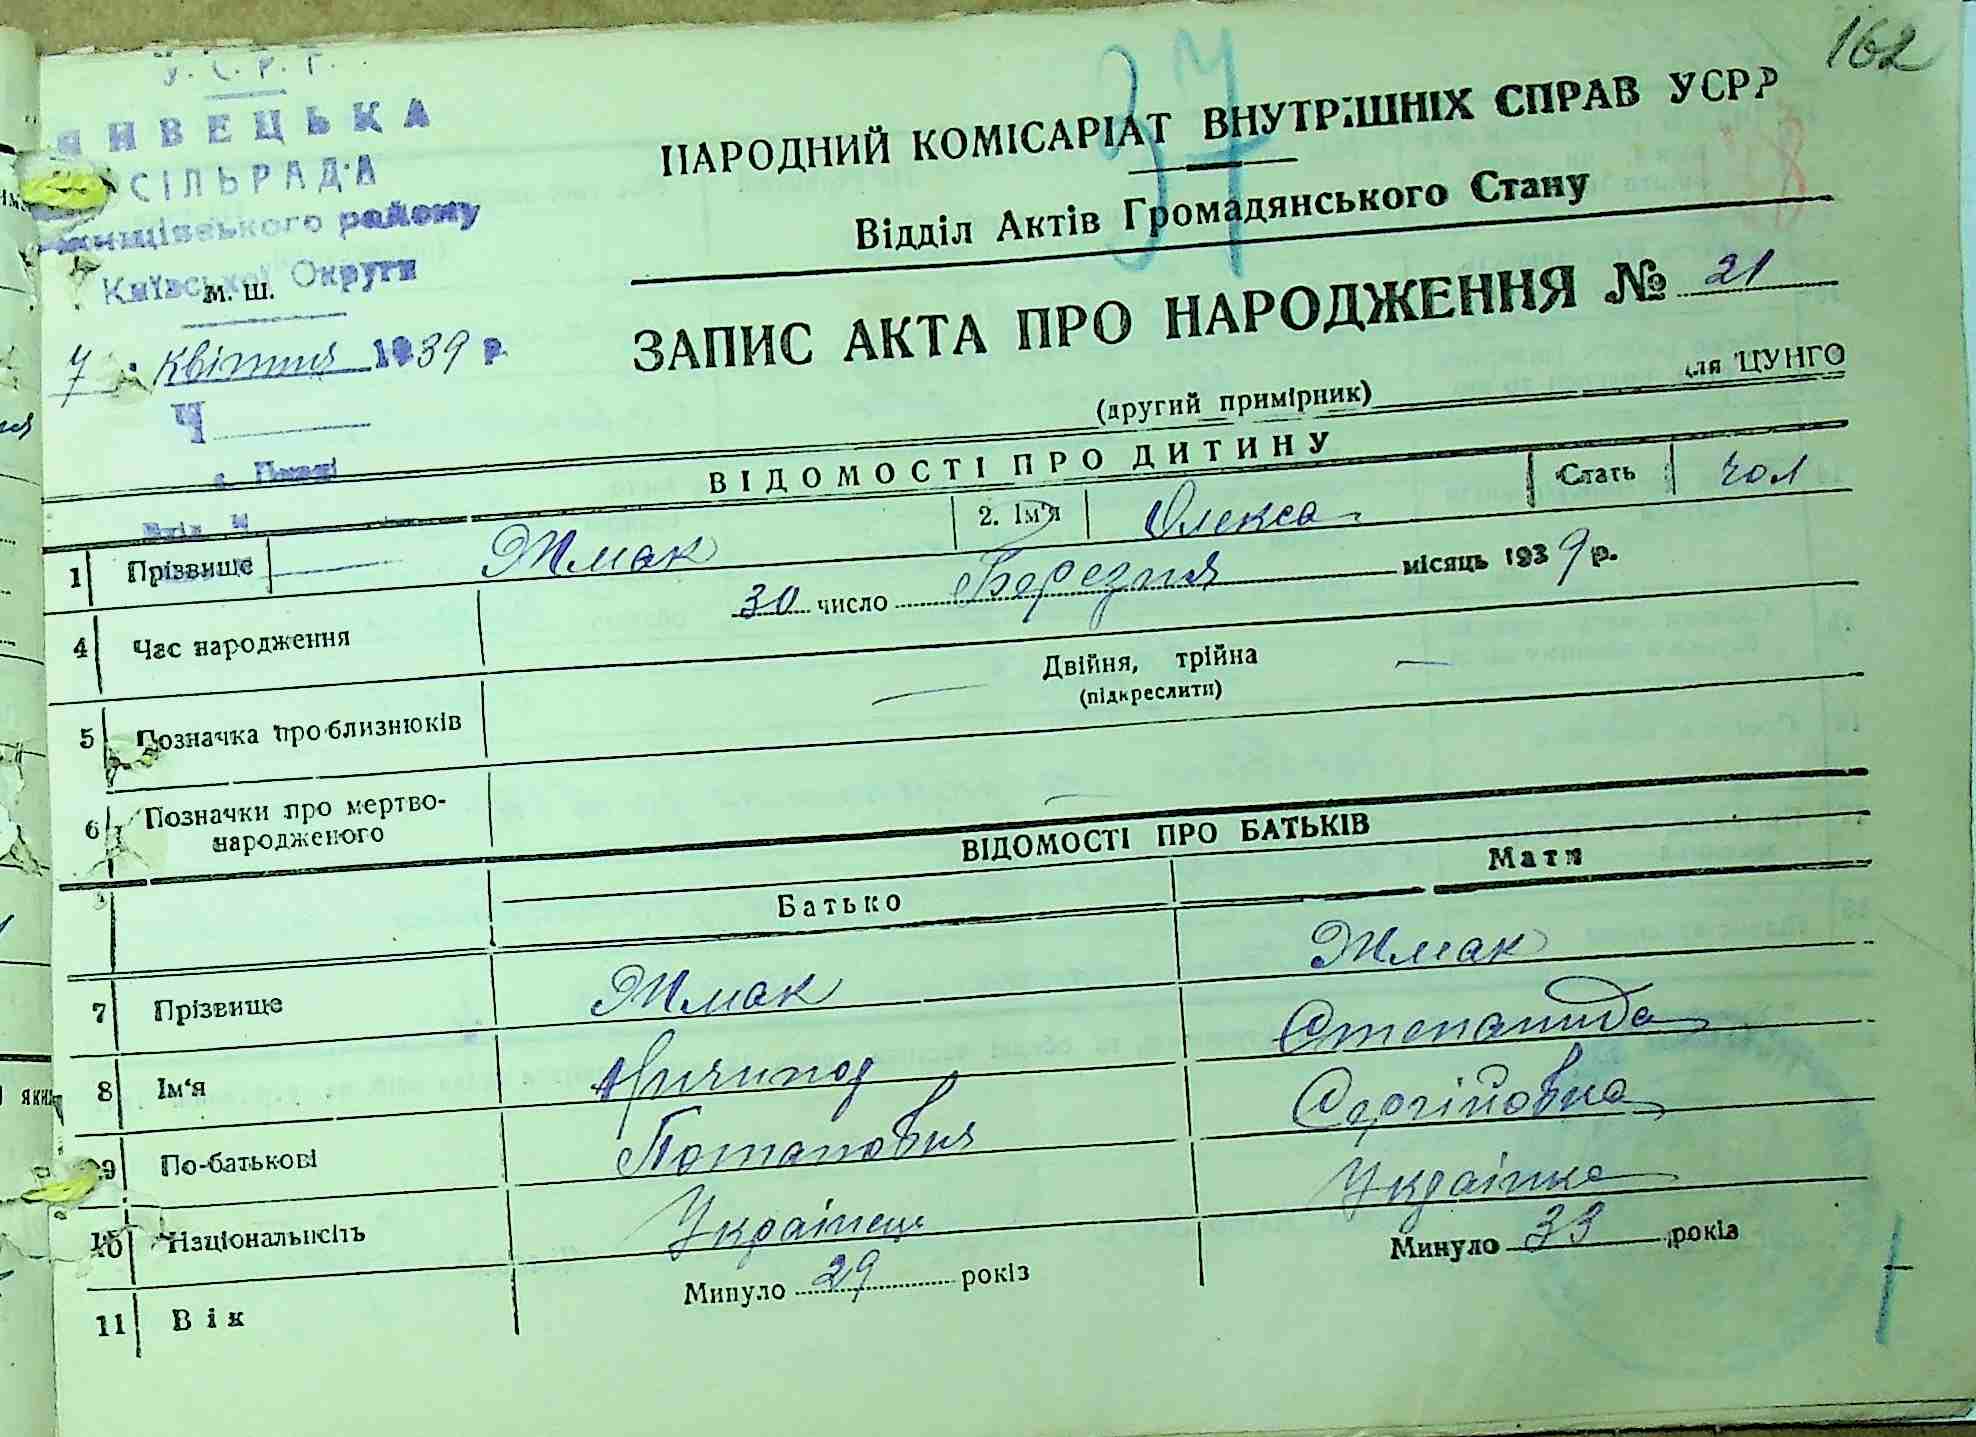 162
У. С. Р. Р.
ЯНИВЕЦЬКА
СІЛЬРАДА
району
Київської Округи
м. ш.
7 квітня 1939 р.
Ч
37
НАРОДНИЙ КОМІСАРІАТ ВНУТРІШНІХ СПРАВ УСРР
Відділ Актів Громадянського Стану
ЗАПИС АКТА ПРО НАРОДЖЕННЯ № 21
(другий примірник) для ЦУНГО
ВІДОМОСТІ ПРО ДИТИНУ
1 Прізвище Жмак 2. Ім'я Олекса Стать чол
4 Час народження 30 число Березня місяць 1939 р.
5 Позначка про близнюків Двійня, трійна
(підкреслити)
6 Позначки про мертво-
народженого
ВІДОМОСТІ ПРО БАТЬКІВ
Батько Мати
7 Прізвище Жмак Жмак
8 Ім‘я Ничипор Степанида
9 По-батькові Потапович Сергіївна
10 Національність Українець Українка
11 Вік Минуло 29 років Минуло 33 років